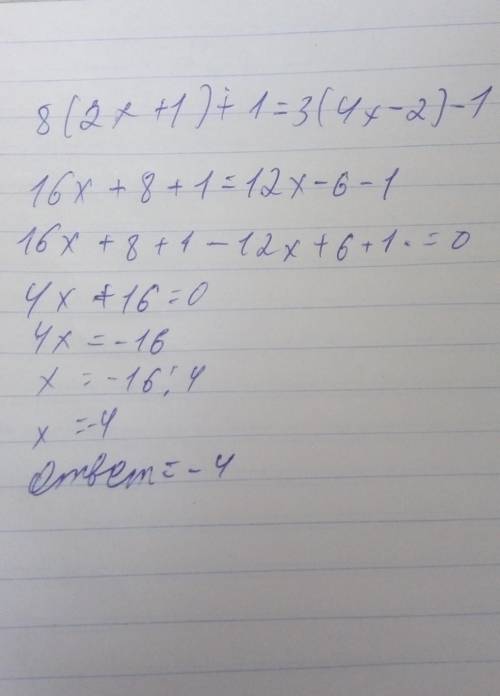 8(2x+1)+1=3(4x-2)-1
16x+8+1=12x-6-1
16x+8+1-12x+6+1.=0
4x+16=0
4x=-16
x=-16:4
x=-4
Ответ=-4